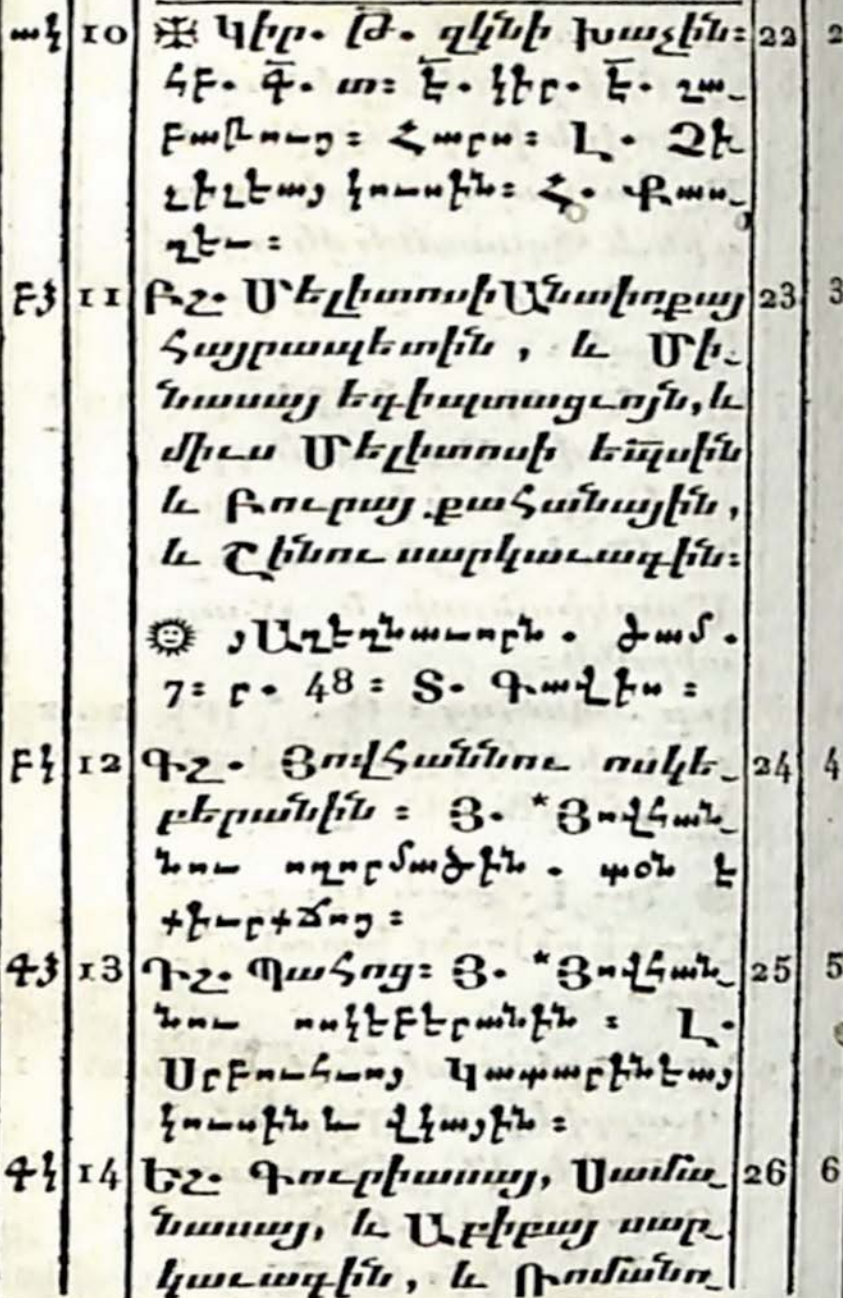 ակ 10 ✠ Կիր. Թ. զկնի խաչին: 22 2
ՀԲ. Գ. տ: Է. կիր. Է. շա_
բաթուց : Հարս : Լ. Չէ
չիլեայ կուսին: Հ. Քաս_
ղեւ :
բձ 11 Բշ. Մելիտոսի Անտիոքայ 23 3
Հայրապետին , և Մի_
նասայ եգիպտացւոյն, և
միւս Մելիտոսի եպսին
և Բուրայ քահանային,
և Շինու սարկաւագին:
յԱղեղնաւորն . ժամ .
7: ր. 48 : Տ.
բկ 12 Գշ. Յովհաննու ոսկե_ 24 4
բերանին : Յ. *Յովհան_
նու ողորմածին . պօն է
քիւրքճոց :
գձ 13 Դշ. Պահոց: Յ. *Յովհան_ 25 5
նու ոսկեբերանին : Լ.
Սրբուհւոյ Կատարինեայ
կուսին և վկային :
գկ 14 Եշ. Գուրիասայ, Սամա_ 26 6
նասայ, և Աբիբայ սար_
կաւագին, և Ռոմանո_